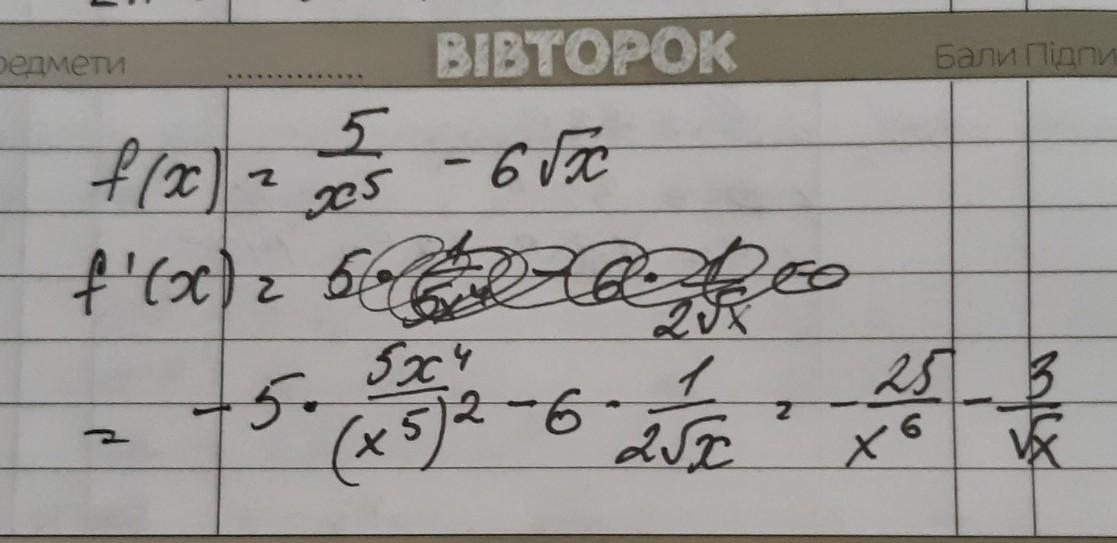 редмети ВІВТОРОК Бали Підпи
f(x) = 5/x⁵ - 6√x
f'(x) = 5
= -5 · 5x⁴/(x⁵)² - 6 · 1/2√x = -25/x⁶ - 3/√x